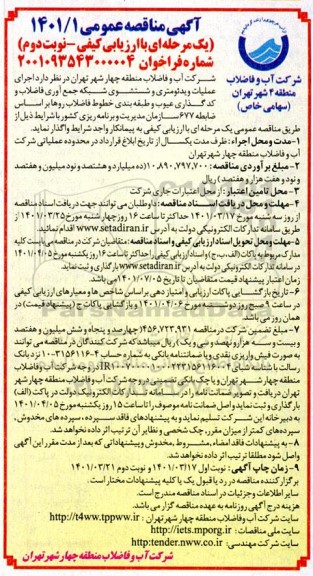 آگهی مناقصه عمومی ۱۴۰۱/۱
(یک مرحله‌ای با ارزیابی کیفی – نوبت دوم)
شماره فراخوان ۲۰۰۱۰۹۳۵۴۳۰۰۰۰۰۴
شرکت آب و فاضلاب
منطقه ۴ شهر تهران
(سهامی خاص)
شرکت آب و فاضلاب منطقه چهار شهر تهران در نظر دارد اجرای
عملیات ویدئومتری و شستشوی شبکه جمع آوری فاضلاب و
کدگذاری عیوب و طبقه بندی خطوط فاضلاب روها بر اساس
ضابطه ۶۷۷ سازمان مدیریت و برنامه ریزی کشور با شرایط ذیل از
طریق مناقصه عمومی یک مرحله ای با ارزیابی کیفی به پیمانکار واجد شرایط واگذار نماید.
۱- مدت و محل اجراء: ظرف مدت یکسال از تاریخ ابلاغ قرارداد در محدوده عملیاتی شرکت
آب و فاضلاب منطقه چهار شهر تهران
۲- مبلغ برآوردی مناقصه: ۱۰,۸۹۰,۷۹۷,۷۰۰ (ده میلیارد و هشتصد و نود میلیون و هفتصد
و نود و هفت هزار و هفتصد) ریال
۳- محل تامین اعتبار: از محل اعتبارات جاری شرکت
۴- مهلت و محل دریافت اسناد مناقصه: داوطلبان می توانند جهت دریافت اسناد مناقصه
از روز سه شنبه مورخ ۱۴۰۱/۰۳/۱۷ حداکثر تا ساعت ۱۶ روز چهارشنبه مورخ ۱۴۰۱/۰۳/۲۵ از
طریق سامانه تدارکات الکترونیکی دولت به آدرس www.setadiran.ir اقدام نمائید.
۵- مهلت و محل تحویل اسناد ارزیابی کیفی و اسناد مناقصه: متقاضیان شرکت در مناقصه می بایست کلیه
مدارک مربوط به پاکات (الف، ب، ج) و اسناد ارزیابی کیفی را حداکثر تا ساعت ۱۶ روز یکشنبه مورخ ۱۴۰۱/۰۴/۰۵
در سامانه تدارکات الکترونیکی دولت به آدرس www.setadiran.ir بارگذاری و ثبت نماید
زمان اعتبار پیشنهاد قیمت متقاضیان تا تاریخ ۱۴۰۱/۰۷/۰۵ می باشد.
۶- تاریخ بازگشایی پاکات: ارزیابی و امتیاز دهی براساس شاخص ها و معیارهای ارزیابی کیفی
در ساعت ۹ صبح روز دوشنبه مورخ ۱۴۰۱/۰۴/۰۶ و بازگشایی پاکات ج (پیشنهاد قیمت) در
همان روز می باشد.
۷- مبلغ تضمین شرکت در مناقصه ۴۵۶,۷۲۳,۹۳۱ (چهارصد و پنجاه و شش میلیون و هفتصد
و بیست و سه هزار و نهصد و سی و یک) ریال میباشد که شرکت کنندگان در مناقصه می توانند
به صورت فیش واریزی نقدی و یا ضمانتنامه بانکی به شماره حساب ۴-۳۱۵۶۱۱۶-۱۰ نزد بانک
منطقه چهار شهر تهران و یا چک بانکی تضمینی در وجه شرکت آب و فاضلاب منطقه چهار شهر
تهران دریافت و تصویر ضمانت نامه را در سامانه تدارکات الکترونیک دولت در پاکت (الف)
بارگذاری و ثبت نماید و اصل ضمانت نامه موصوف را تا ساعت ۱۵ روز یکشنبه مورخ ۱۴۰۱/۰۴/۰۵
به دبیرخانه این شرکت تسلیم نماید و به پیشنهادهای فاقد سپرده، سپرده های مخدوش،
سپرده‌های کمتر از میزان مقرر، چک شخصی و نظایر آن ترتیب اثر داده نخواهد شد.
۸- به پیشنهادات فاقد امضاء، مشروط، مخدوش و پیشنهاداتی که بعد از مدت مقرر این آگهی
واصل شود مطلقا ترتیب اثر داده نخواهد شد.
۹- زمان چاپ آگهی: نوبت اول ۱۴۰۱/۰۳/۱۷ و نوبت دوم ۱۴۰۱/۰۳/۲۱
برگزار کننده مناقصه در رد یا قبول یک یا کلیه پیشنهادات مختار است.
سایر اطلاعات و جزئیات در اسناد مناقصه مندرج است.
هزینه درج آگهی روزنامه به عهده مناقصه گزار می باشد.
سایت شرکت آب و فاضلاب منطقه چهار شهر تهران: http://t4ww.tppww.ir
سایت ملی مناقصات: http://iets.mporg.ir
سایت شرکت مهندسی: http:tender.nww.co.ir
شرکت آب و فاضلاب منطقه چهار شهر تهران